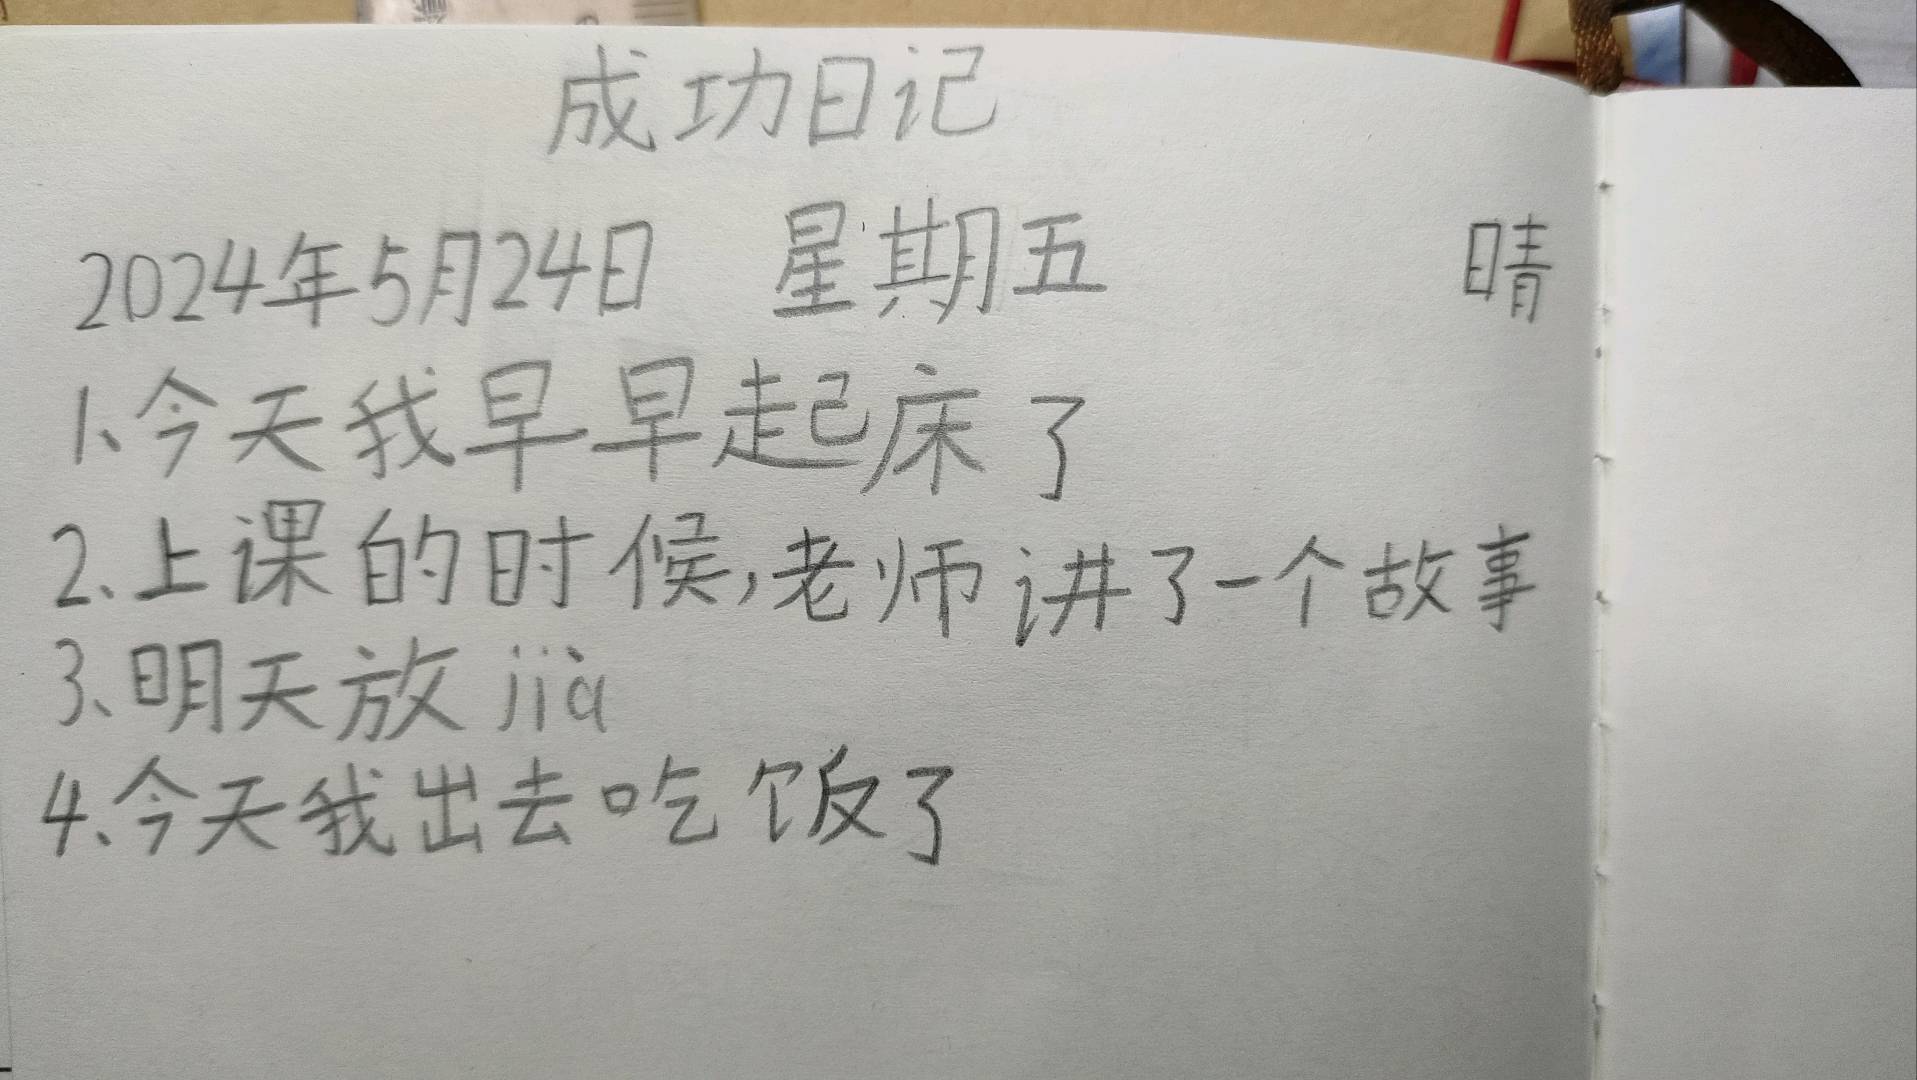 成功日记
2024年5月24日 星期五 晴
1、今天我早早起床了
2、上课的时候,老师讲了一个故事
3、明天放jià
4、今天我出去吃饭了